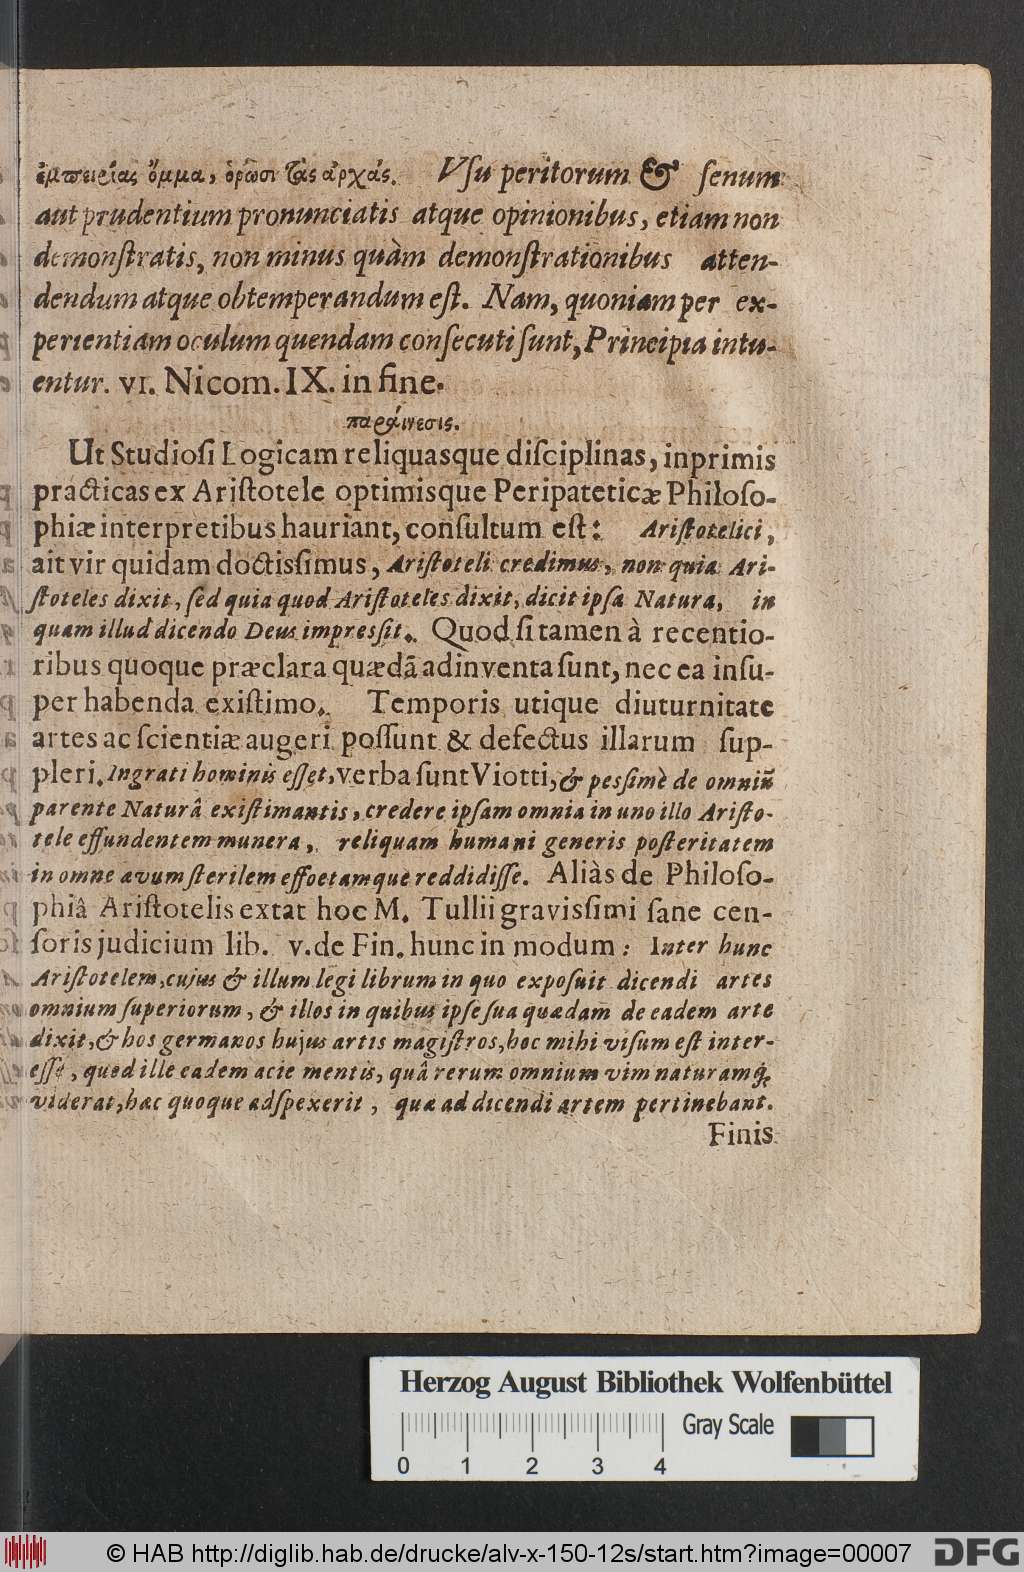 ἐμπειρίας ὄμμα, ὁρῶσι τὰς ἀρχάς. Vſu peritorum & ſenum
aut prudentium pronunciatis atque opinionibus, etiam non
demonſtratis, non minus quàm demonſtrationibus atten-
dendum atque obtemperandum eſt. Nam, quoniam per ex-
perientiam oculum quendam conſecuti ſunt, Principia intu-
entur. VI. Nicom. IX. in fine.
παραίνεσις.
Ut Studioſi Logicam reliquasque diſciplinas, inprimis
practicas ex Ariſtotele optimisque Peripateticæ Philoſo-
phiæ interpretibus hauriant, conſultum eſt: Ariſtotelici,
ait vir quidam doctisſimus, Ariſtoteli credimus, non quia Ari-
ſtoteles dixit, ſed quia quod Ariſtoteles dixit, dicit ipſa Natura, in
quam illud dicendo Deus impresſit. Quod ſi tamen à recentio-
ribus quoque præclara quædã adinventa ſunt, nec ea inſu-
per habenda exiſtimo. Temporis utique diuturnitate
artes ac ſcientiæ augeri poſſunt & defectus illarum ſup-
pleri. Ingrati hominis eſſet, verba ſunt Viotti, & pesſimè de omniũ
parente Naturâ exiſtimantis, credere ipſam omnia in uno illo Ariſto-
tele effundentem munera, reliquam humani generis poſteritatem
in omne avum ſterilem effoetamque reddidiſſe. Aliàs de Philoſo-
phiâ Ariſtotelis extat hoc M. Tullii gravisſimi ſane cen-
ſoris judicium lib. v. de Fin. hunc in modum: Inter hunc
Ariſtotelem, cujus & illum legi librum in quo expoſuit dicendi artes
omnium ſuperiorum, & illos in quibus ipſe ſua quædam de eadem arte
dixit, & hos germanos hujus artis magiſtros, hoc mihi viſum eſt inter-
eſſe, quod ille eadem acie mentis, quâ rerum omnium vim naturamq́;
viderat, hæc quoque adſpexerit, quæ ad dicendi artem pertinebant.
Finis
Herzog August Bibliothek Wolfenbüttel
Gray Scale
0 1 2 3 4
© HAB http://diglib.hab.de/drucke/alv-x-150-12s/start.htm?image=00007
DFG